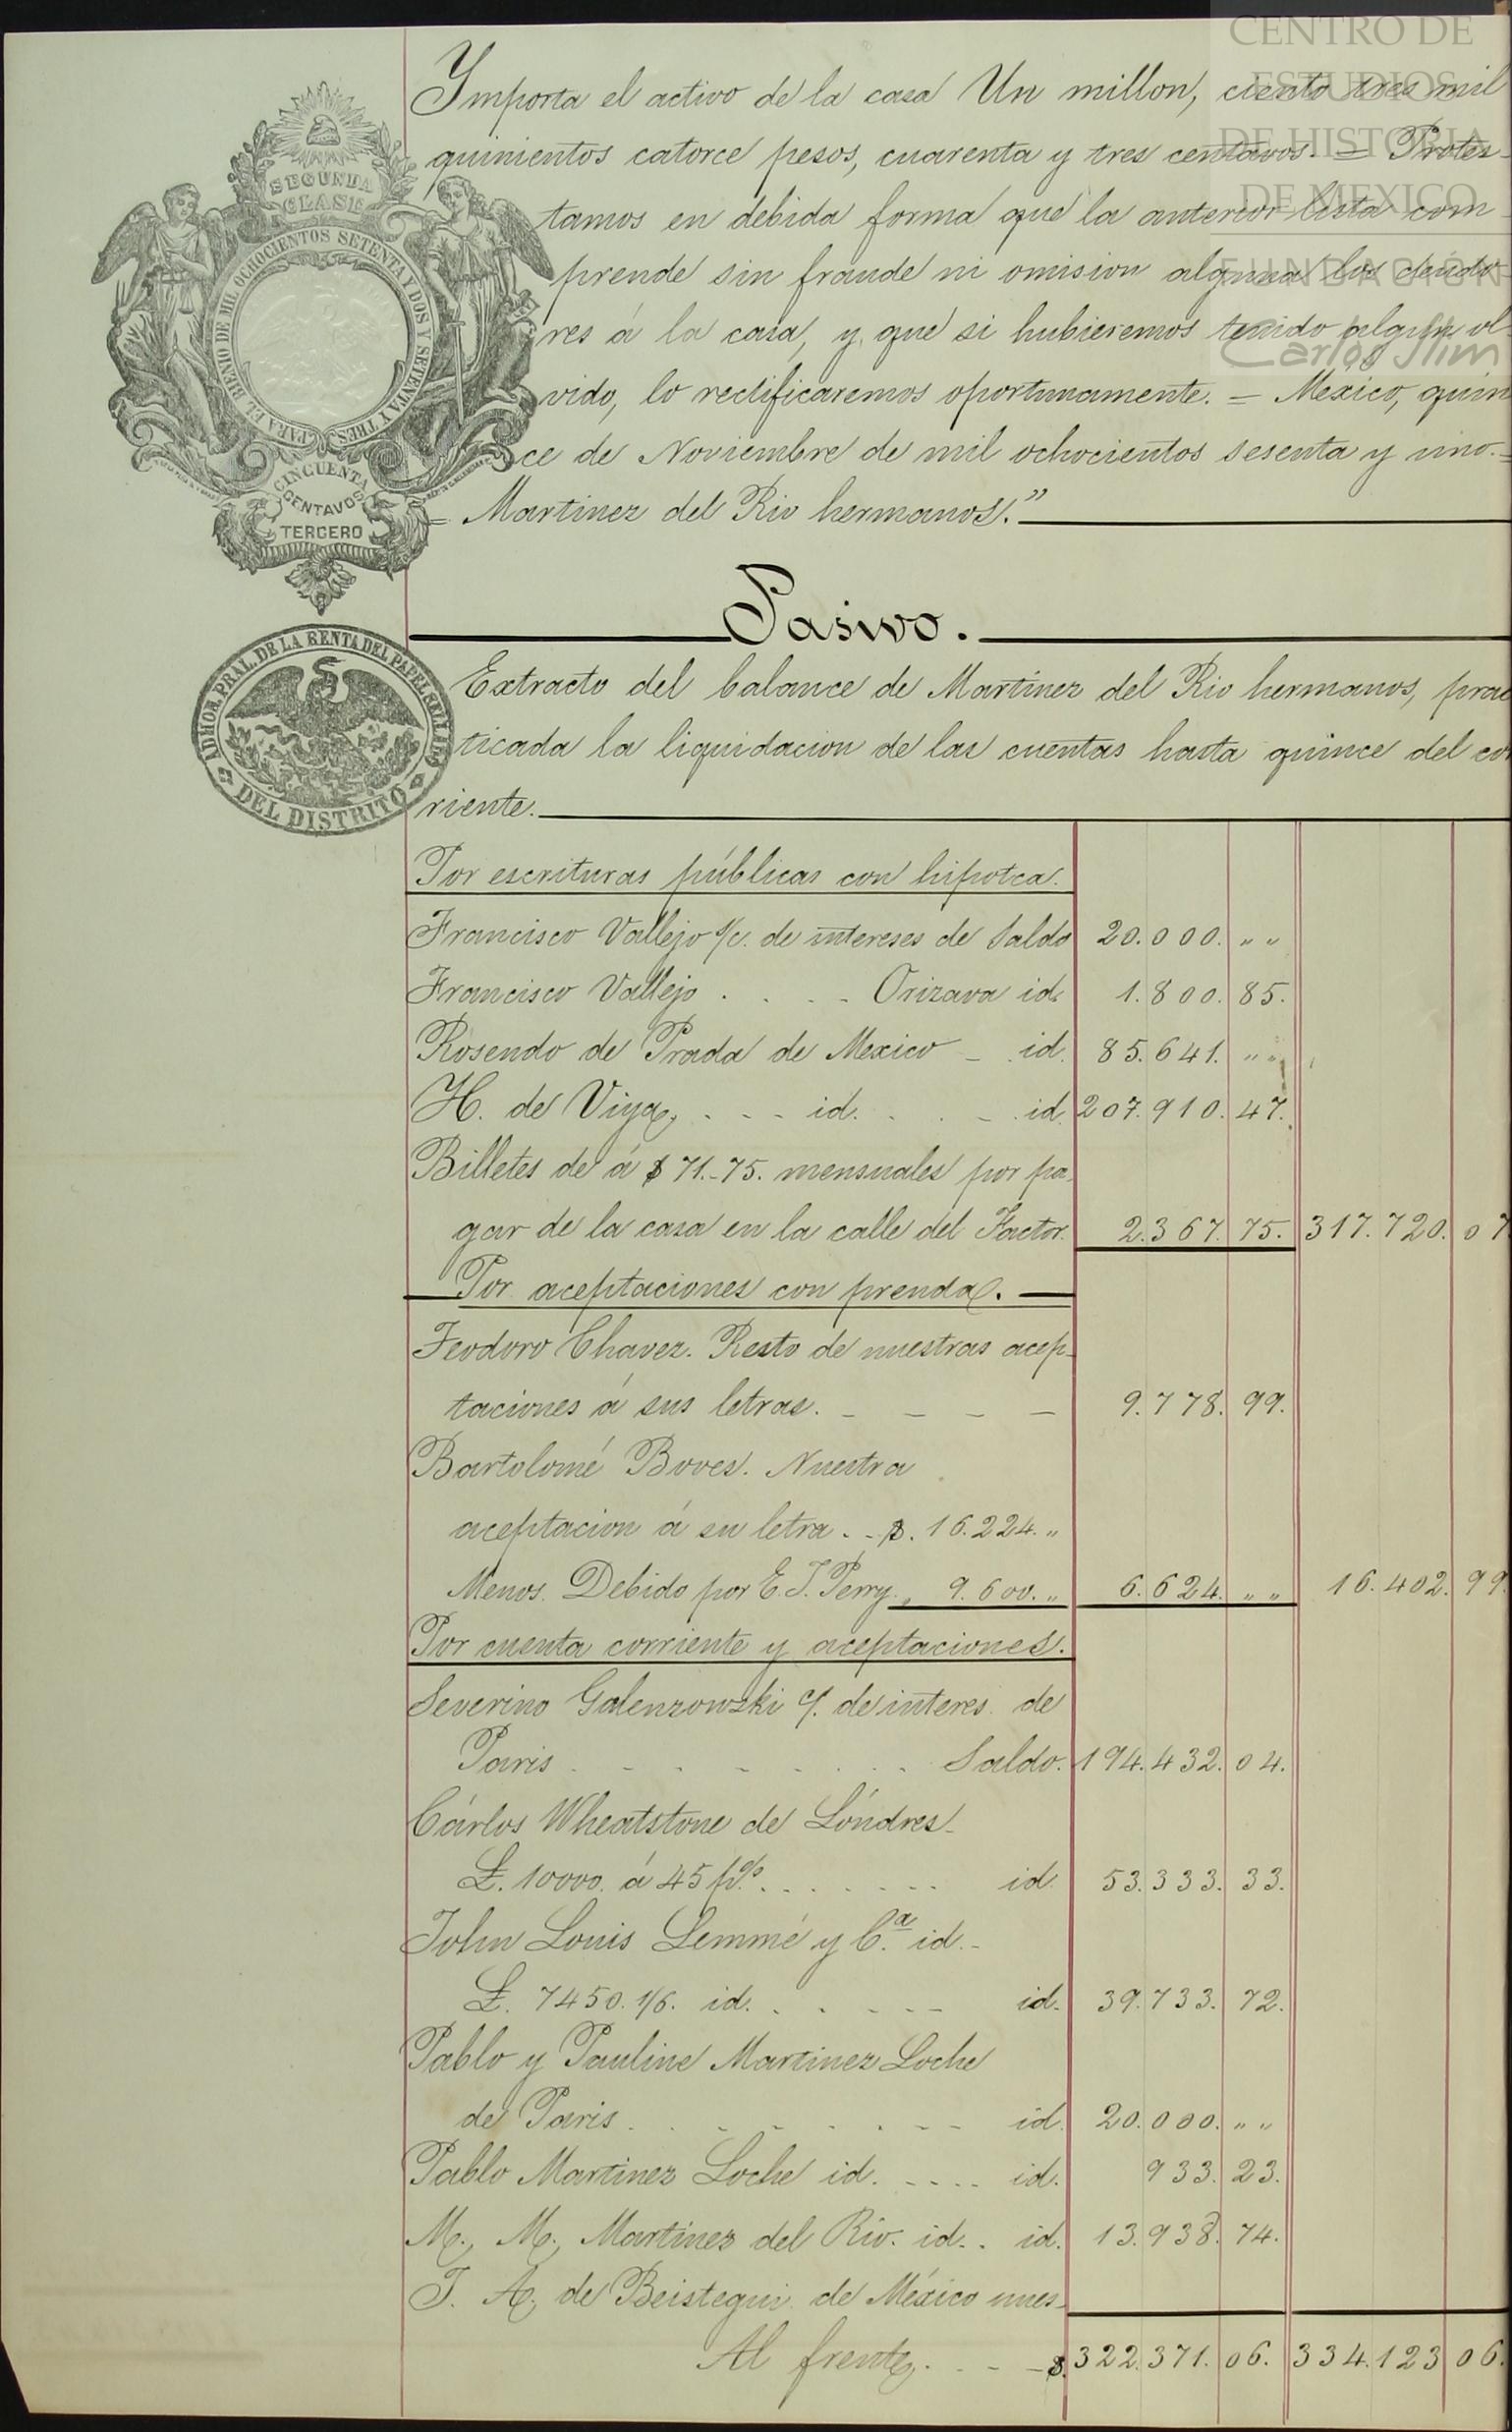 CENTRO DE
ESTUDIOS
DE HISTORIA
DE MEXICO
FUNDACIÓN
Carlos Slim
SEGUNDA
CLASE
PARA EL BIENIO DE MIL OCHOCIENTOS SETENTA Y DOS Y SETENTA Y TRES
CINCUENTA
CENTAVOS
TERCERO
Ymporta el activo de la casa Un millon, ciento tres mil
quinientos catorce pesos, cuarenta y tres centavos. = Protes-
tamos en debida forma que la anterior lista com-
prende sin fraude ni omision alguna los deudo-
res á la casa, y que si hubieremos tenido algun ol-
vido, lo rectificaremos oportunamente. = Mexico, quin
ce de Noviembre de mil ochocientos sesenta y uno. =
= Martinez del Rio hermanos."
Pasivo.
ADMOR. PRAL. DE LA RENTA DEL PAPEL SELLADO
DEL DISTRITO
Extracto del balance de Martinez del Rio hermanos, prac
ticada la liquidacion de las cuentas hasta quince del cor
riente.
Por escrituras públicas con hipoteca.
Francisco Vallejo s/c. de intereses de Saldo 20.000. „ „
Francisco Vallejo . . . . Orizava id. 1.800. 85.
Rosendo de Prada de Mexico - id. 85.641. „ „
H. de Viya, . - - id. . . - id. 207.910. 47.
Billetes de á $ 71.-75. mensuales por pa-
gar de la casa en la calle del Factor. 2.367. 75. 317.720. 07
Por aceptaciones con prenda.
Teodoro Chavez. Resto de nuestras acep-
taciones á sus letras. - - - - 9.778. 99.
Bartolomé Boves. Nuestra
aceptacion á su letra. . - $. 16.224. „
Menos. Debido por E. J. Perry. „ 9.600. „ 6.624. „ „ 16.402. 99
Por cuenta corriente y aceptaciones.
Severino Galenzowski c/. de interes de
Paris . - - - - - . . Saldo. 194.432. 04.
Cárlos Wheatstone de Lóndres-
£. 10000. á 45 p%. . . . . . . id. 53.333. 33.
John Louis Lemmé y Cª. id.-
£. 7450. 1/6. id. . . . - - id. 39.733. 72.
Pablo y Pauline Martinez Loche
de Paris . . - - - - - - id. 20.000. „ „
Pablo Martinez Loche id. . - - . . id. 933. 23.
M. M. Martinez del Rio. id. . id. 13.938. 74.
J. A. de Beistegui de México nues-
Al frente, . - - $. 322.371. 06. 334.123 06.